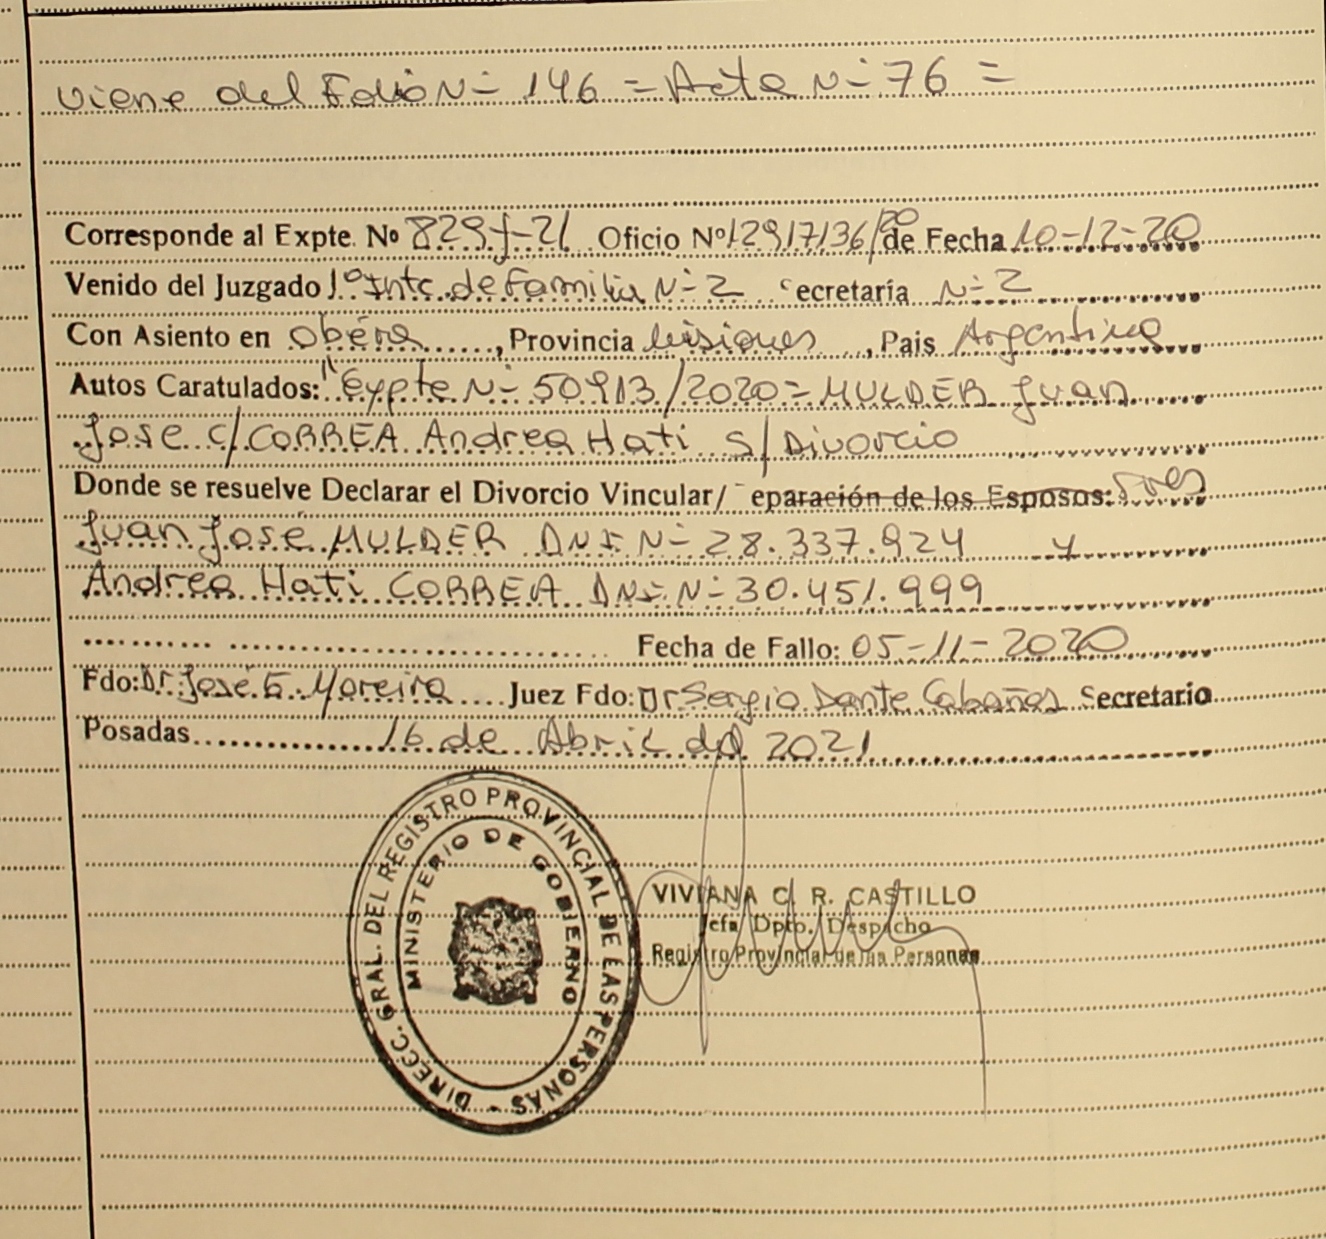 Viene del Folio N- 146 = Acta N- 76 =
Corresponde al Expte. No 829-J-21 Oficio Nº 12917136/20 de Fecha 10-12-20
Venido del Juzgado 1º Intc. de Familia N-2 ecretaría N-2
Con Asiento en Oberá, Provincia Misiones, Pais Argentina
Autos Caratulados: "Expte N- 50913/2020 = MULDER Juan
Jose C/CORREA Andrea Hati S/Divorcio
Donde se resuelve Declarar el Divorcio Vincular/ eparación de los Esposos: Sres
Juan José MULDER DNI N- 28.337.924 y
Andrea Hati CORREA DNI N- 30.451.999
Fecha de Fallo: 05-11-2020
Fdo: Dr José G. Moreira Juez Fdo: Dr Sergio Dante Cabañas Secretario
Posadas 16 de Abril del 2021
DIRECC. GRAL. DEL REGISTRO PROVINCIAL DE LAS PERSONAS -
MINISTERIO DE GOBIERNO
VIVIANA C. R. CASTILLO
Jefa Dpto. Despacho
Registro Provincial de las Personas